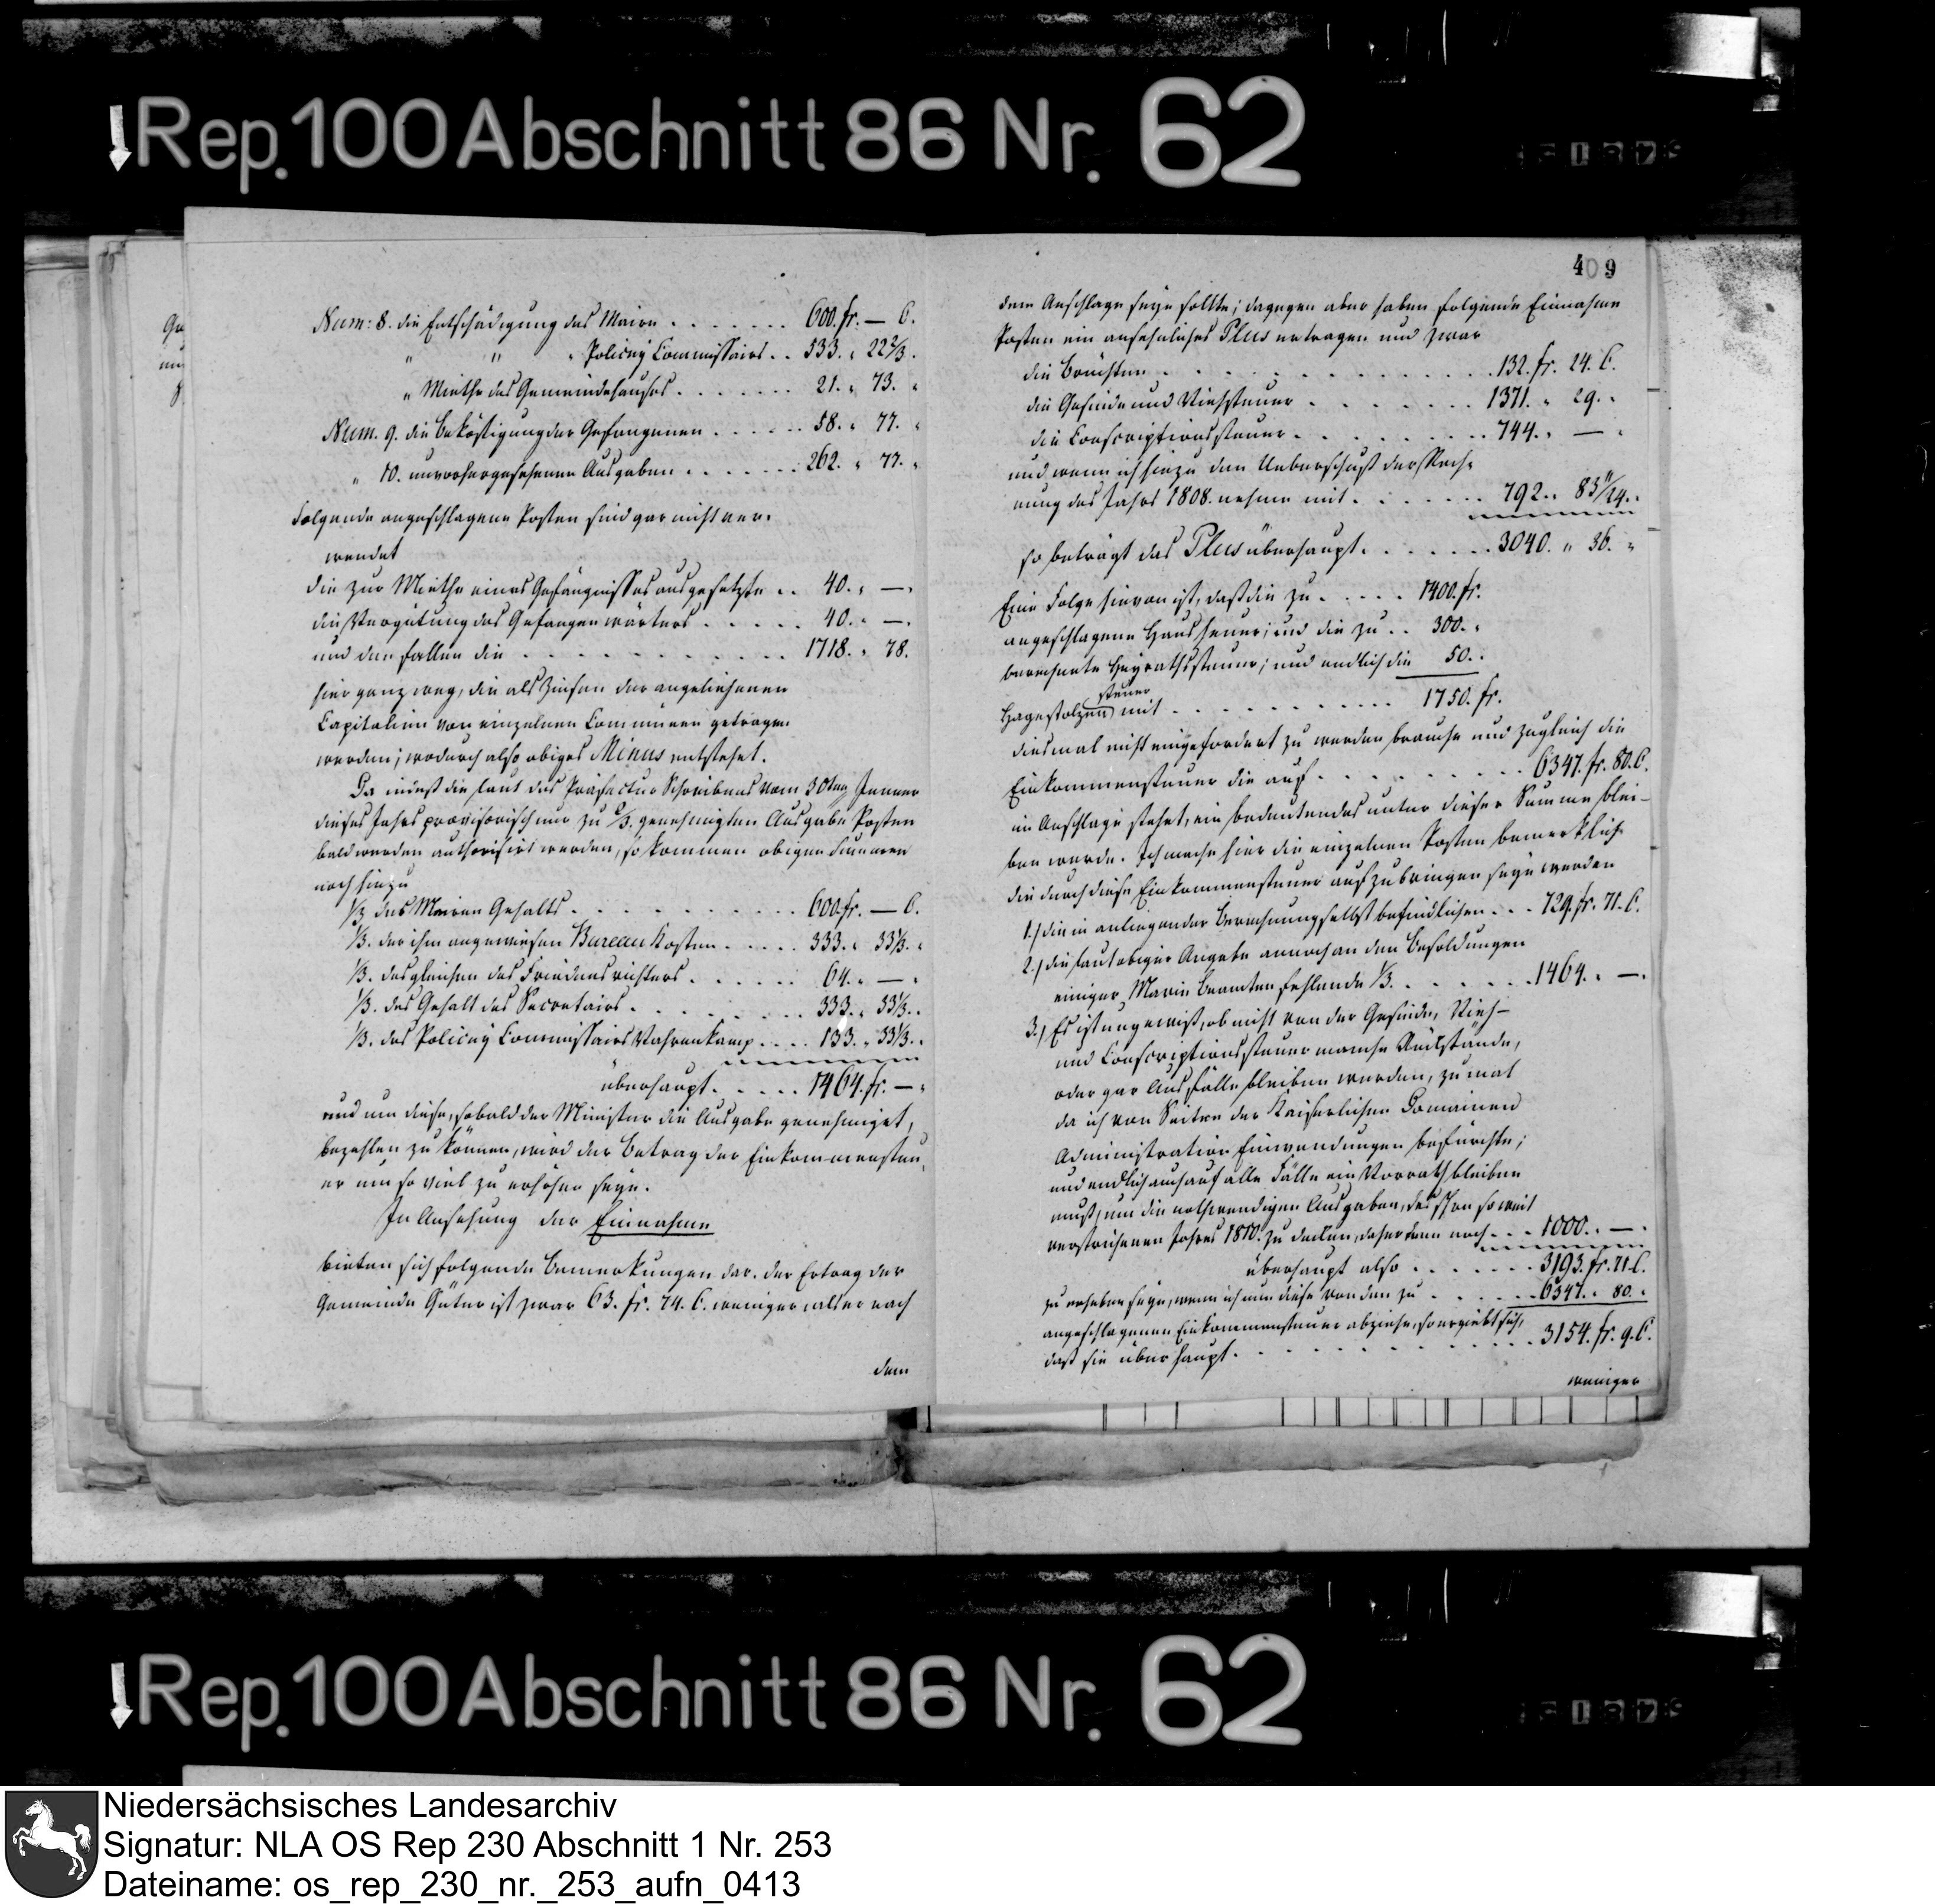 Rep. 100 Abschnitt 86 Nr. 62
Num: 8. die Entschädigung des Maire . . . . . . . 600. fr. — C.
" " " Policey Commissairs . . 533. " 22 2/3.
" Miethe des Gemeindehauses . . . . . . . 21. " 73. "
Num. 9. die Beköstigung der Gefangenen . . . . . . 58. " 77. "
" 10. unvorhergesehenen Ausgaben . . . . . . . 262. " 77. "
Folgende angeschlagene Posten sind gar nicht ver-
wendet
die zur Miethe eines Gefängnisses ausgesetzte . . 40. " —.
die Vergütung des Gefangenwärters . . . . . 40. " —.
und dann fallen die . . . . . . . . . . . . 1718. " 78.
hier ganz weg, die als Zinsen der angeliehenen
Capitalien von einzelnen Communen getragen
werden; wodurch also obiges Minus entstehet.
Da indeß die laut des Präfectur Schreibens vom 30ten Jenner
dieses Jahrs provisorisch nur zu 2/3. genehmigten Ausgabe Posten
bald werden authorisirt werden, so kommen obigen Summen
noch hinzu
1/3 des Maires Gehalts . . . . . . . . . . 600 fr. — C.
1/3. der ihm angewiesen Bureau Kosten . . . . . 333. " 33 1/3. "
1/3. desgleichen des Friedensrichters . . . . . . 64. " — "
1/3. des Gehalt des Secretairs . . . . . . . . 333. " 33 1/3. "
1/3. des Policey Commissairs Vahrenkamp . . . . 133. " 33 1/3. "
überhaupt . . . . . 1464. fr. — "
und um diese, sobald der Minister die Ausgabe genehmiget,
bezahlen zu können, wird der Betrag der Einkommensteu-
er um so viel zu erhöhen seyn.
In Ansehung der Einnahme
bieten sich folgende Bemerkungen dar. der Ertrag der
Gemeinde Güter ist zwar 63. fr. 74. C. weniger als er nach
dem
409
dem Anschlage seyn sollte; dagegen aber haben folgende Einnahme
Posten ein ansehnliches Plus ertragen und zwar
die Brüchten . . . . . . . . . . . . . 132. fr. 24. C.
die Gesinde und Viehsteuer . . . . . . . 1371. " 29. "
die Conscriptionssteuer . . . . . . . . . 744. " — "
und wenn ich hiezu den Ueberschuß der Rech-
nung des Jahrs 1808. nehme mit . . . . . . . 792. " 83 11/24. "
so beträgt das Plus überhaupt . . . . . . . 3040. " 36. "
Eine Folge hievon ist, daß die zu . . . . . 1400. fr.
angeschlagene Haussteuer; und die zu . . 300. "
berechnete Heyrathssteuer; und endlich die 50. "
steuer
Hagestolzen mit . . . . . . . . . . . 1750. fr.
diesmal nicht eingefordert zu werden brauche und zugleich die
Einkommensteuer die auf . . . . . . . . . . 6347. fr. 80. C.
im Anschlage stehet, ein bedeutendes unter dieser Summe blei-
ben werde. Ich mache hier die einzelnen Posten bemerklich
die durch diese Einkommensteuer aufzubringen seyn werden
1.) die in anliegender Berechnung selbst befindlichen . . . 729. fr. 71. C.
2.) die laut obiger Angabe annoch an den Besoldungen
einiger Marie Beamten fehlende 1/3. . . . . . . . 1464. " —.
3.) Es ist ungewiß, ob nicht von der Gesinde, Vieh-
und Conscriptionssteuer manche Rückstände,
oder gar Ausfälle bleiben werden, zumal
da ich von Seiten der Kaiserlichen Domainen
Administration Einwendungen befürchte;
und endlich auch auf alle Fälle ein Vorrath bleiben
muß, um die nothwendigen Ausgaben, des schon so weit
verstrichenen Jahres 1810. zu decken, daher denn noch . . . 1000. " —.
überhaupt also . . . . . . . 3193. fr. 71 C.
zu erheben seyn, wenn ich nun diese von den zu . . . . . . 6347. " 80. "
angeschlagenen Einkommensteuer abziehe, so ergiebt sich,
daß sie überhaupt . . . . . . . . . . . . . 3154. fr. 9. C.
weniger
Rep. 100 Abschnitt 86 Nr. 62
Niedersächsisches Landesarchiv
Signatur: NLA OS Rep 230 Abschnitt 1 Nr. 253
Dateiname: os_rep_230_nr._253_aufn_0413